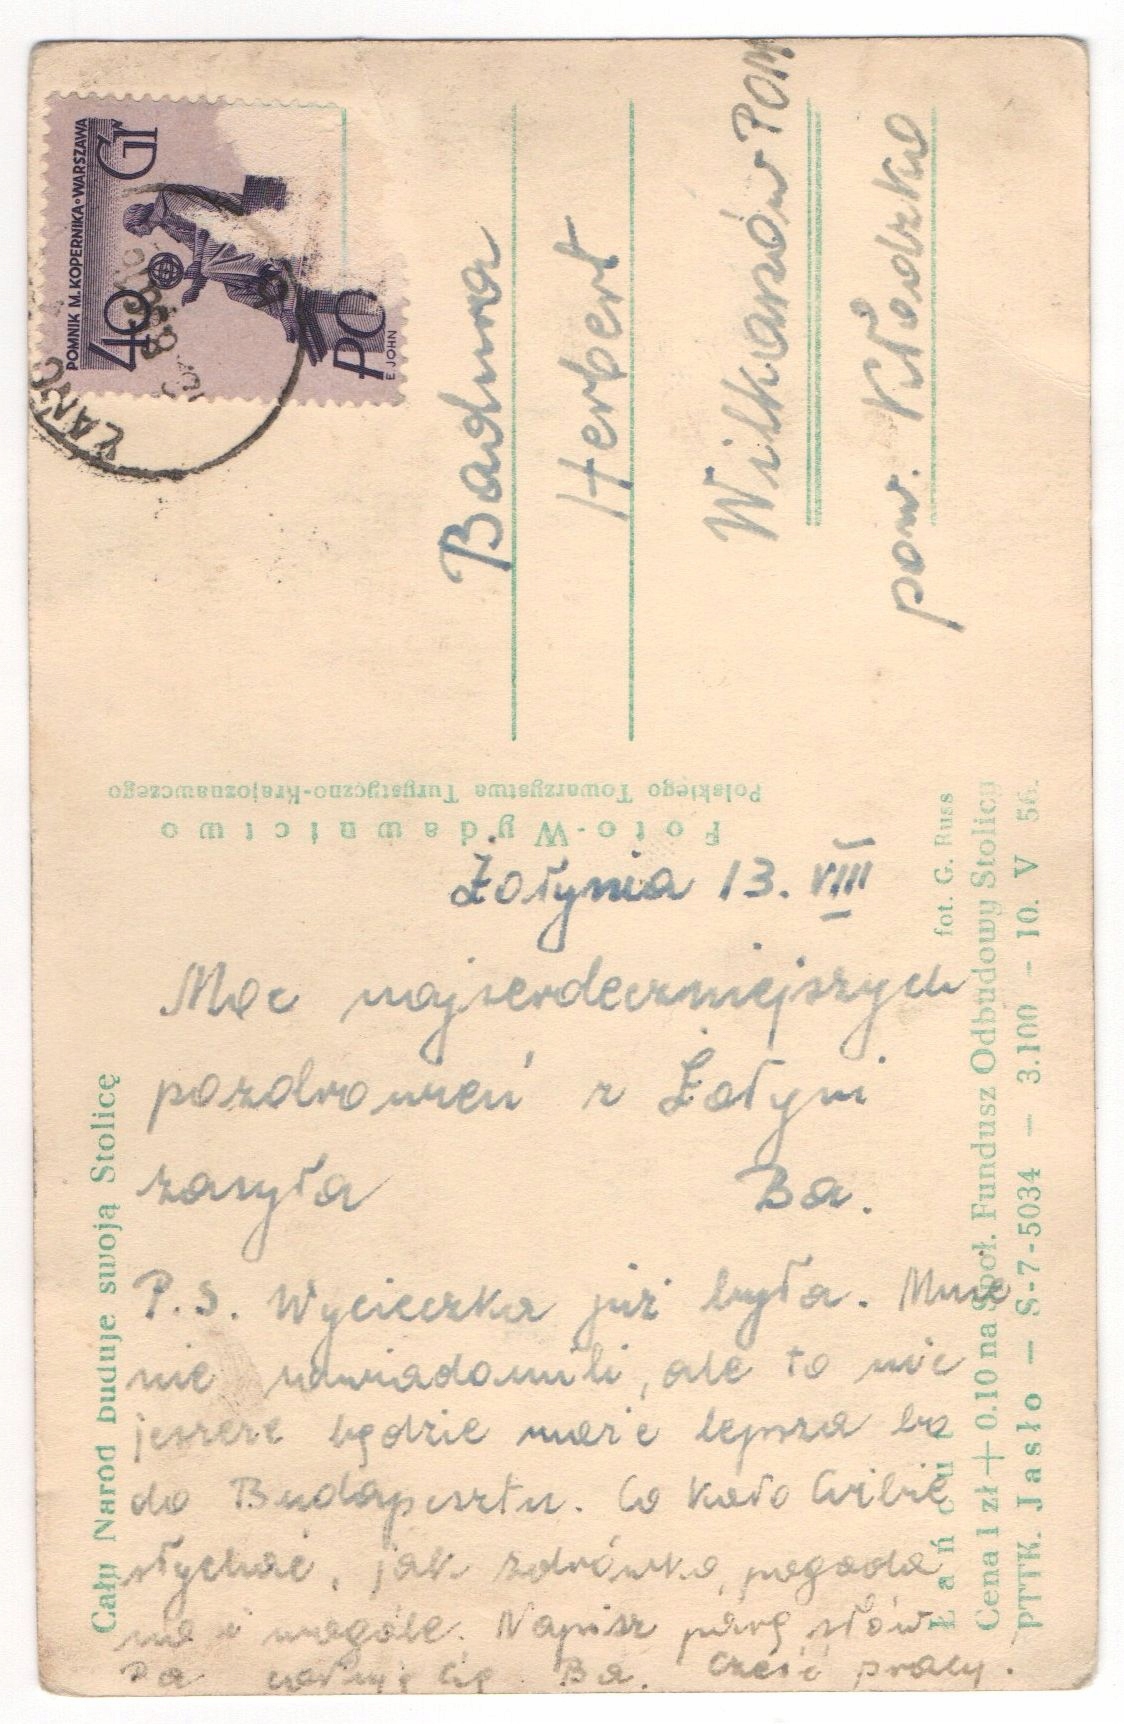 POMNIK M. KOPERNIKA•WARSZAWA
40 GR
POC
E. JOHN
ŁAŃC
Badura
Herbert
Wilkanów POM
pow. Kłodzko
Foto-Wydawnictwo
Polskiego Towarzystwa Turystyczno-Krajoznawczego
Żołynia 13. VIII
Moc najserdeczniejszych
pozdrowień z Żołyni
zasyła Ba.
P.S. Wycieczka już była. Mnie
nie uwiadomili, ale to nic
jeszcze będzie może lepsza bo
do Budapesztu. Co koło Ciebie
słychać, jak zdrówko, pogoda
no i wogóle. Napisz parę słów
Pa całuję Cię Ba. Cześć pracy.
Cały Naród buduje swoją Stolicę
Łańcut
fot. G. Russ
Cena 1 zł + 0.10 na Społ. Fundusz Odbudowy Stolicy
PTTK. Jasło — S-7-5034 — 3.100 - 10. V 56.